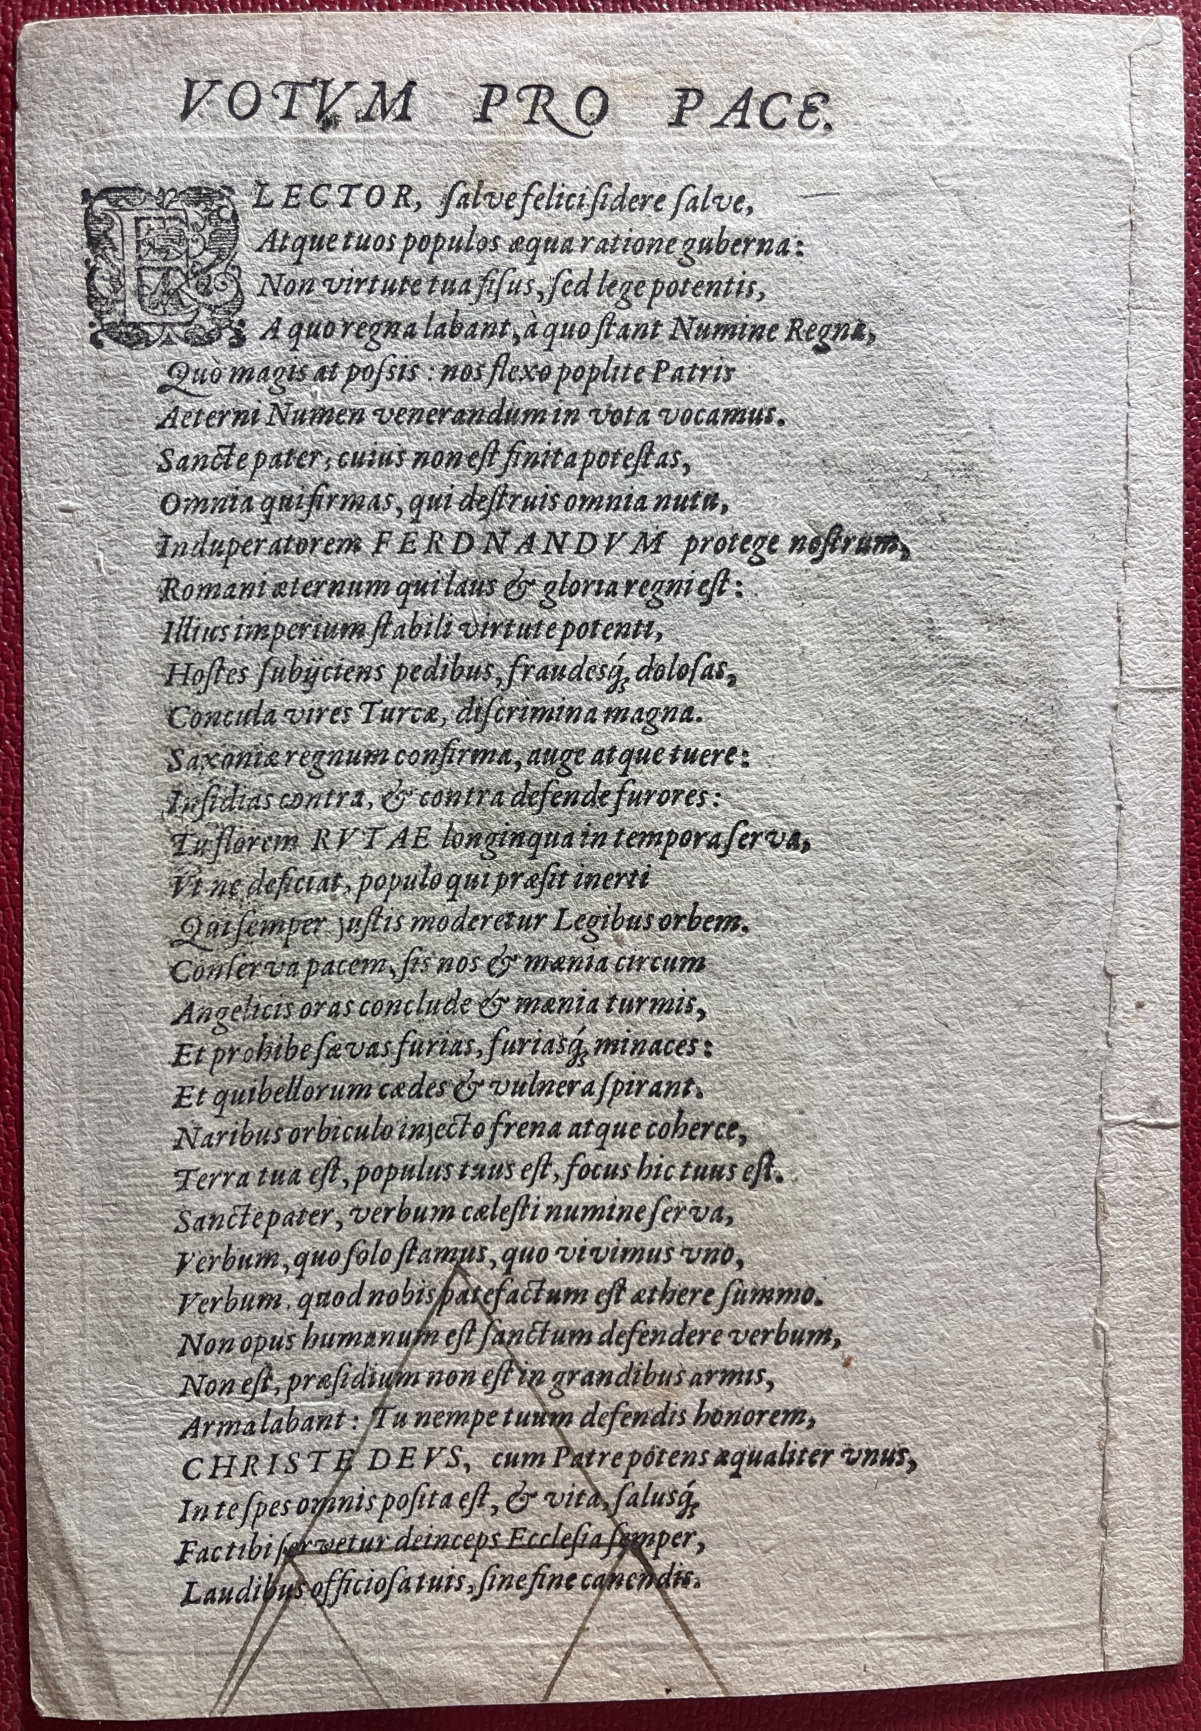 VOTVM PRO PACE.
ELECTOR, ſalve felici ſidere ſalve,
Atque tuos populos æqua ratione guberna:
Non virtute tua fiſus, ſed lege potentis,
A quo regna labant, à quo ſtant Numine Regna,
Quò magis at poſsis: nos flexo poplite Patris
Aeterni Numen venerandum in vota vocamus.
Sancte pater, cuius non eſt finita poteſtas,
Omnia qui firmas, qui deſtruis omnia nutu,
Induperatorem FERDNANDVM protege noſtrum,
Romani æternum qui laus & gloria regni eſt:
Illius imperium ſtabili virtute potenti,
Hoſtes ſubijciens pedibus, fraudesq́; doloſas,
Concula vires Turcæ, diſcrimina magna.
Saxoniæ regnum confirma, auge atque tuere:
Inſidias contra, & contra defende furores:
Tu florem RVTAE longinqua in tempora ſerva,
Vt ne deficiat, populo qui præſit inerti
Qui ſemper juſtis moderetur Legibus orbem.
Conſerva pacem, ſis nos & mænia circum
Angelicis oras conclude & mænia turmis,
Et prohibe ſævas furias, furiasq́; minaces:
Et qui bellorum cædes & vulnera ſpirant.
Naribus orbiculo injecto frena atque coherce,
Terra tua eſt, populus tuus eſt, focus hic tuus eſt.
Sancte pater, verbum cæleſti numine ſerva,
Verbum, quo ſolo ſtamus, quo vivimus vno,
Verbum, quod nobis patefactum eſt æthere ſummo.
Non opus humanum eſt ſanctum defendere verbum,
Non eſt, præſidium non eſt in grandibus armis,
Arma labant: Tu nempe tuum defendis honorem,
CHRISTE DEVS, cum Patre potens æqualiter vnus,
In te ſpes omnis poſita eſt, & vita, ſalusq́;
Fac tibi ſervetur deinceps Eccleſia ſemper,
Laudibus officioſa tuis, ſine fine canendis.